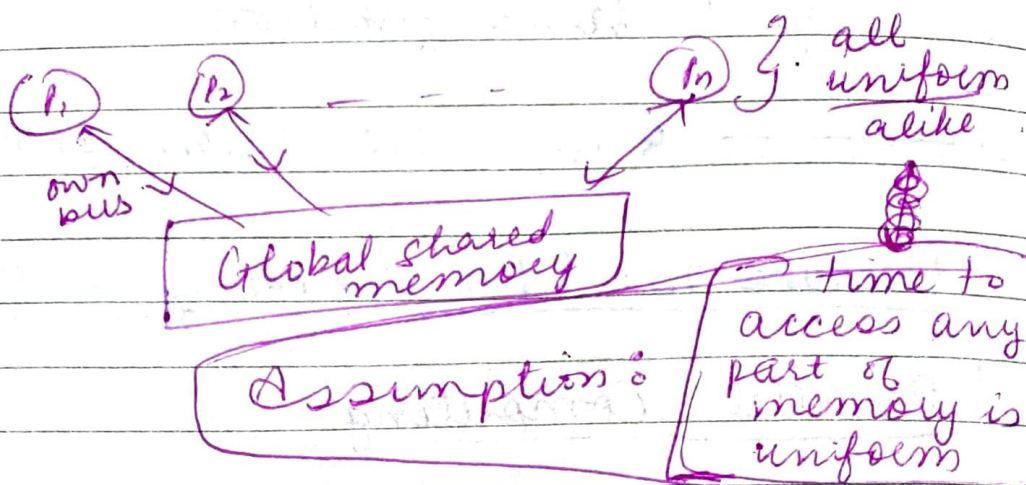 P1 P2 - - - - Pn } all
uniform
alike
own
bus
Global shared
memory
Assumption :
time to
access any
part of
memory is
uniform